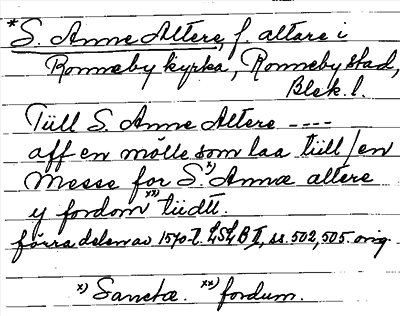 *S. Anne Altere, f. altare i
Ronneby kyrka, Ronneby stad,
Blek. l.
Tiill S. Anne Altere ----
aff en mölle som laa tiill / en
Messe for S.x) Annæ altere
y fordom xx) tiidtt.
förra delen av 1570-t. LSLB I, ss. 502, 505. orig.
x) Sanctæ. xx) fordum.